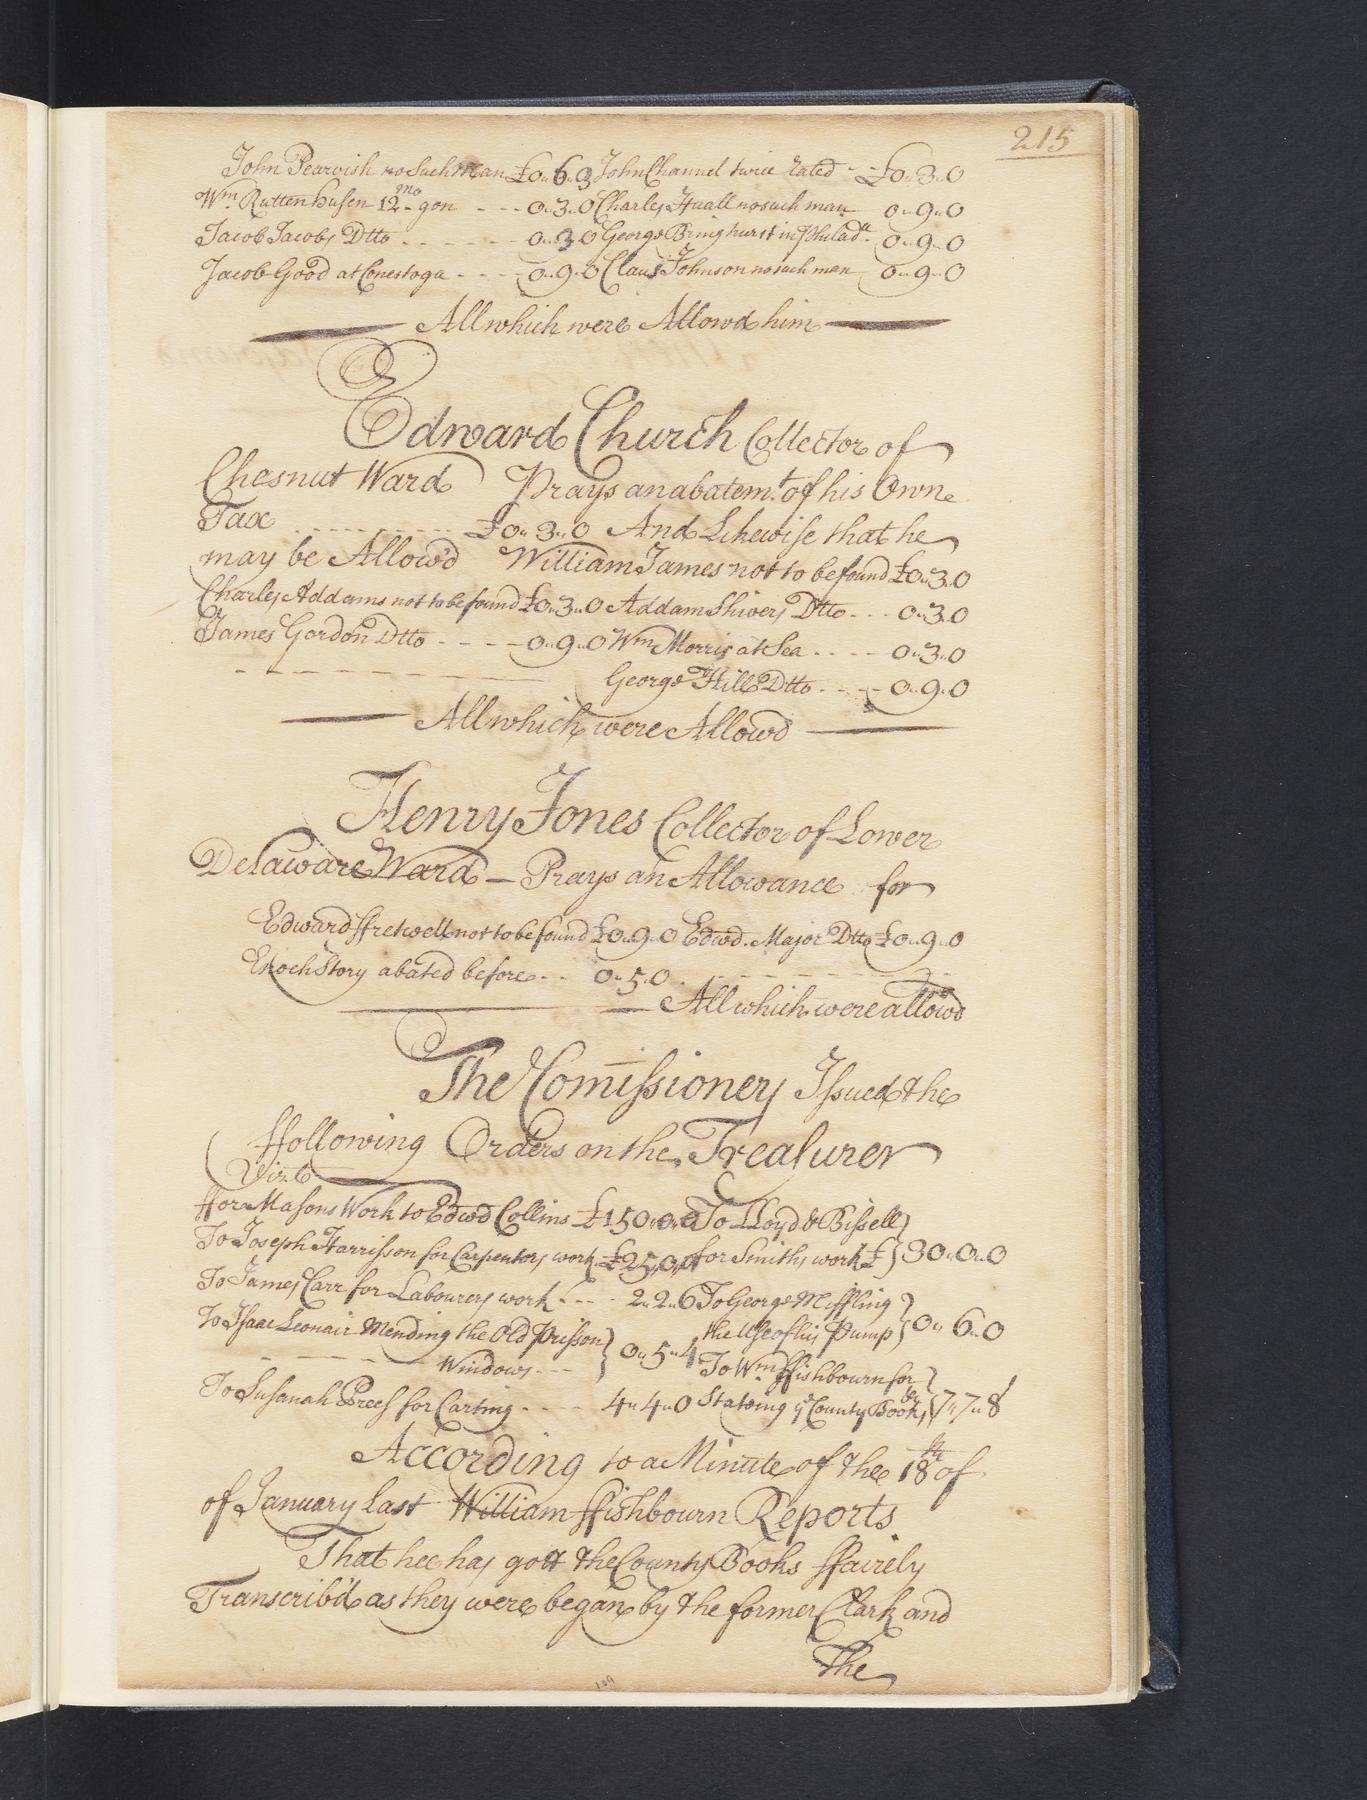 215
John Pearvish no Such man £0„6„3 John Channel twice rated - £0„3„0
Wm. Ruttenhusen 12mo. gon - - - 0„3„0 Charles Huall no such man 0„9„0
Jacob Jacobs Dtto - - - - - - 0„3„0 George Bringhurst in Philada. 0„9„0
Jacob Good at Conestoga - - - 0„9„0 Claus Johnson no such man 0„9„0
All which were Allowd him
Edward Church Collector of
Chesnut Ward Prays an abatem.t of his Owne
Tax - - - - - - - - - £0„3„0 And Likewise that he
may be Allow'd William James not to be found £0„3„0
Charles Addams not to be found £0„3„0 Addam Shivers Dtto - - - 0„3„0
James Gordon Dtto - - - - 0„9„0 Wm Morris at Sea - - - - 0„3„0
George Hill Dtto - - - - 0„9„0
All which were Allowd
Henry Jones Collector of Lower
Delaware Ward — Prays an Allowance for
Edward ffretwell not to be found £0„9„0 Edwd. Major Dtto £0„9„0
Enoch Story abated before - - 0„5„0
All which were allowd
The Comissioners Issued the
ffollowing Orders on the Treasurer
Vizt
ffor Masons Work to Edwd Collins £150„0„0 To Lloyd & Bissell
To Joseph Harrisson for Carpenters work £25„0„0 for Smiths work £ 30„0„0
To James Carr for Labourers work - - - 2„2„6 To George Miffling
the Use of his Pump 0„6„0
To Isaac Leonair Mending the Old Prisson
Windows - - - 0„5„4 To Wm. ffishbourn for
To Susanah Prees for Carting - - - - 4„4„0 Stateing ye County Books &c 7„7„8
According to a Minute of the 18th of
of January last William ffishbourn Reports
That hee has gott the County Books ffairely
Transcrib'd as they were began by the former Clark and
The
129